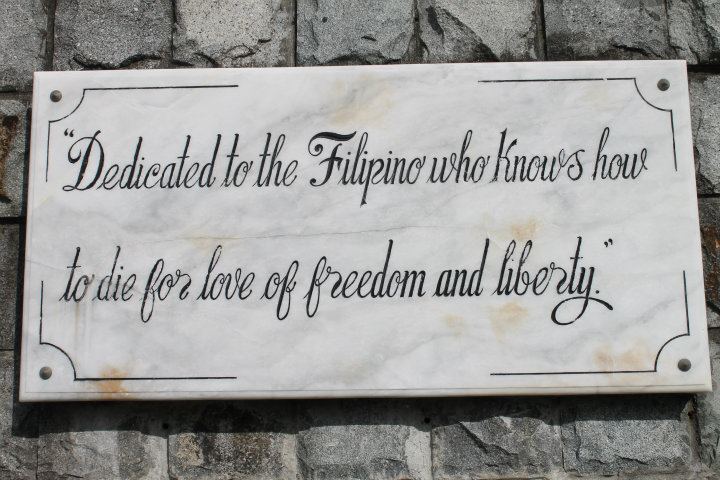 “Dedicated to the Filipino who knows how
to die for love of freedom and liberty.”